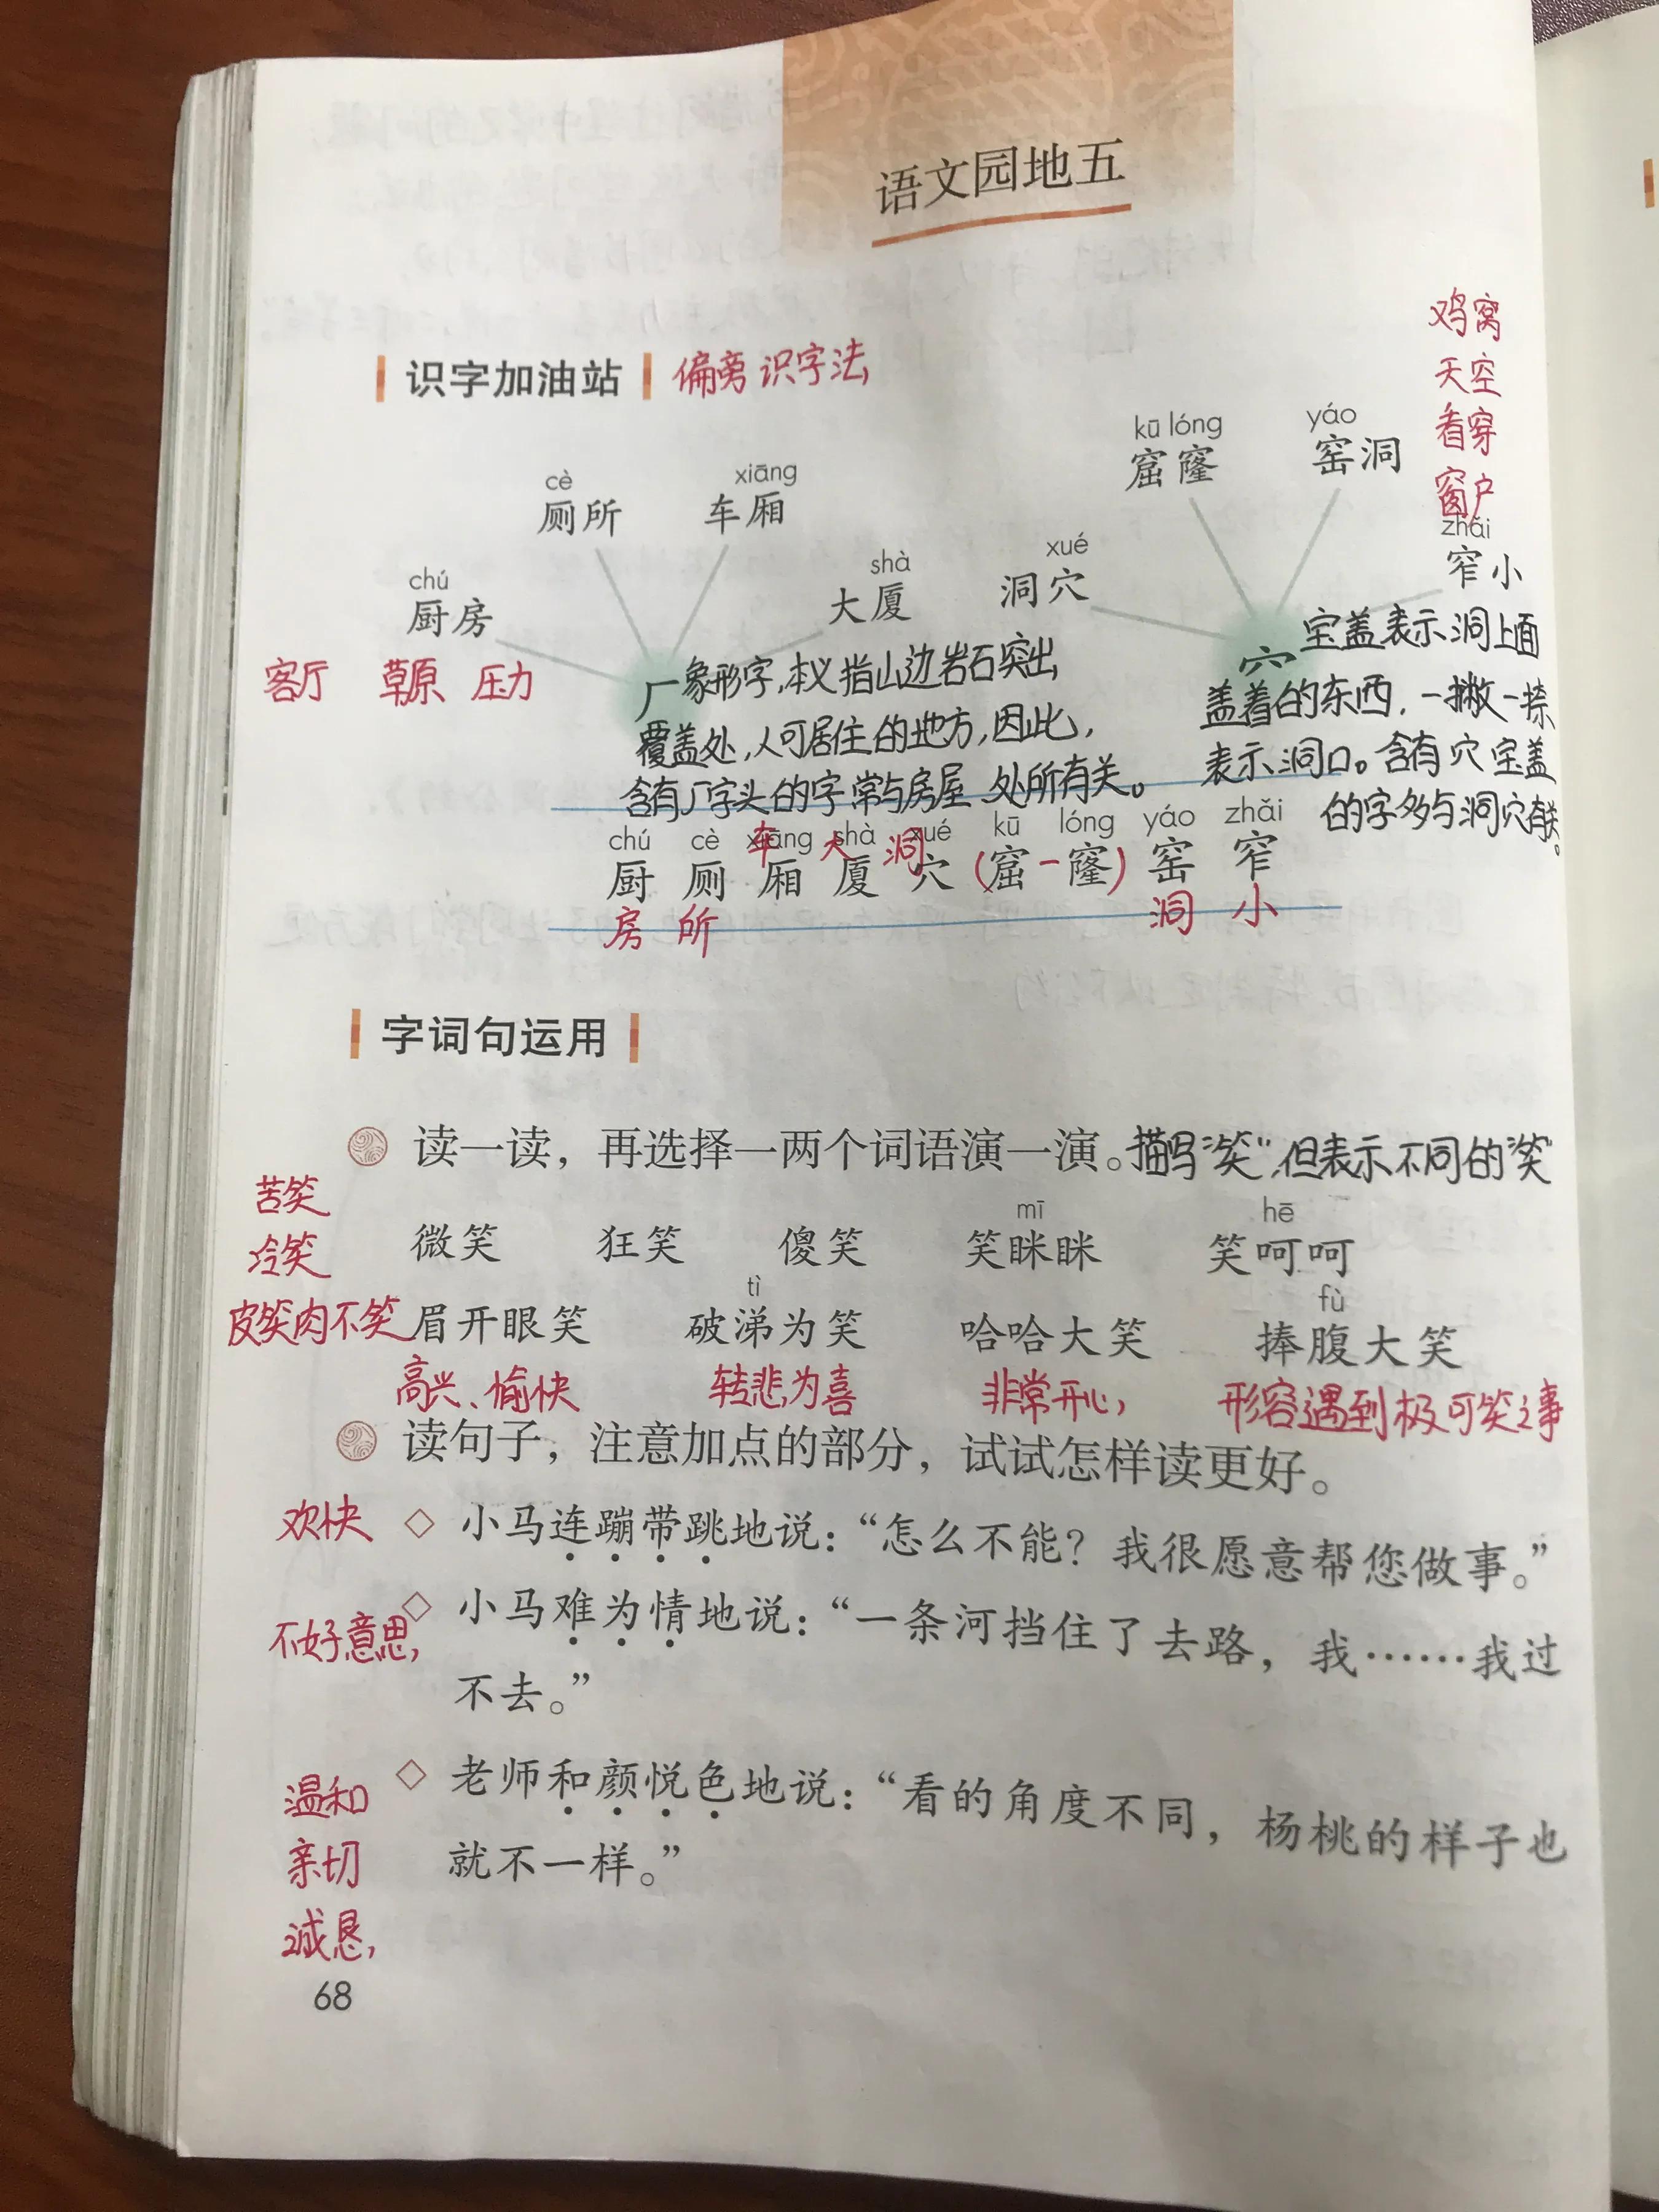 语文园地五
识字加油站 偏旁识字法
鸡窝
天空
看穿
窗户
kū lóng yáo
窟窿 窑洞
cè xiāng
厕所 车厢
zhǎi
窄小
chú shà xué
厨房 大厦 洞穴
客厅 草原 压力
厂象形字,本义指山边岩石突出
覆盖处,人可居住的地方,因此,
含有厂字头的字常与房屋处所有关。
穴宝盖表示洞上面
盖着的东西.一撇一捺
表示洞口。含有穴宝盖
的字多与洞穴有关。
chú cè xiāng shà xué kū lóng yáo zhǎi
车 大 洞
厨 厕 厢 厦 穴 (窟-窿) 窑 窄
房 所 洞 小
字词句运用
读一读，再选择一两个词语演一演。描写“笑”,但表示不同的“笑”
苦笑
冷笑
皮笑肉不笑
mī hē
微笑 狂笑 傻笑 笑眯眯 笑呵呵
tì fù
眉开眼笑 破涕为笑 哈哈大笑 捧腹大笑
高兴、愉快 转悲为喜 非常开心, 形容遇到极可笑之事
读句子，注意加点的部分，试试怎样读更好。
欢快 ◇ 小马连蹦带跳地说：“怎么不能？我很愿意帮您做事。”
不好意思, ◇ 小马难为情地说：“一条河挡住了去路，我……我过
不去。”
◇ 老师和颜悦色地说：“看的角度不同，杨桃的样子也
就不一样。”
温和
亲切
诚恳,
68